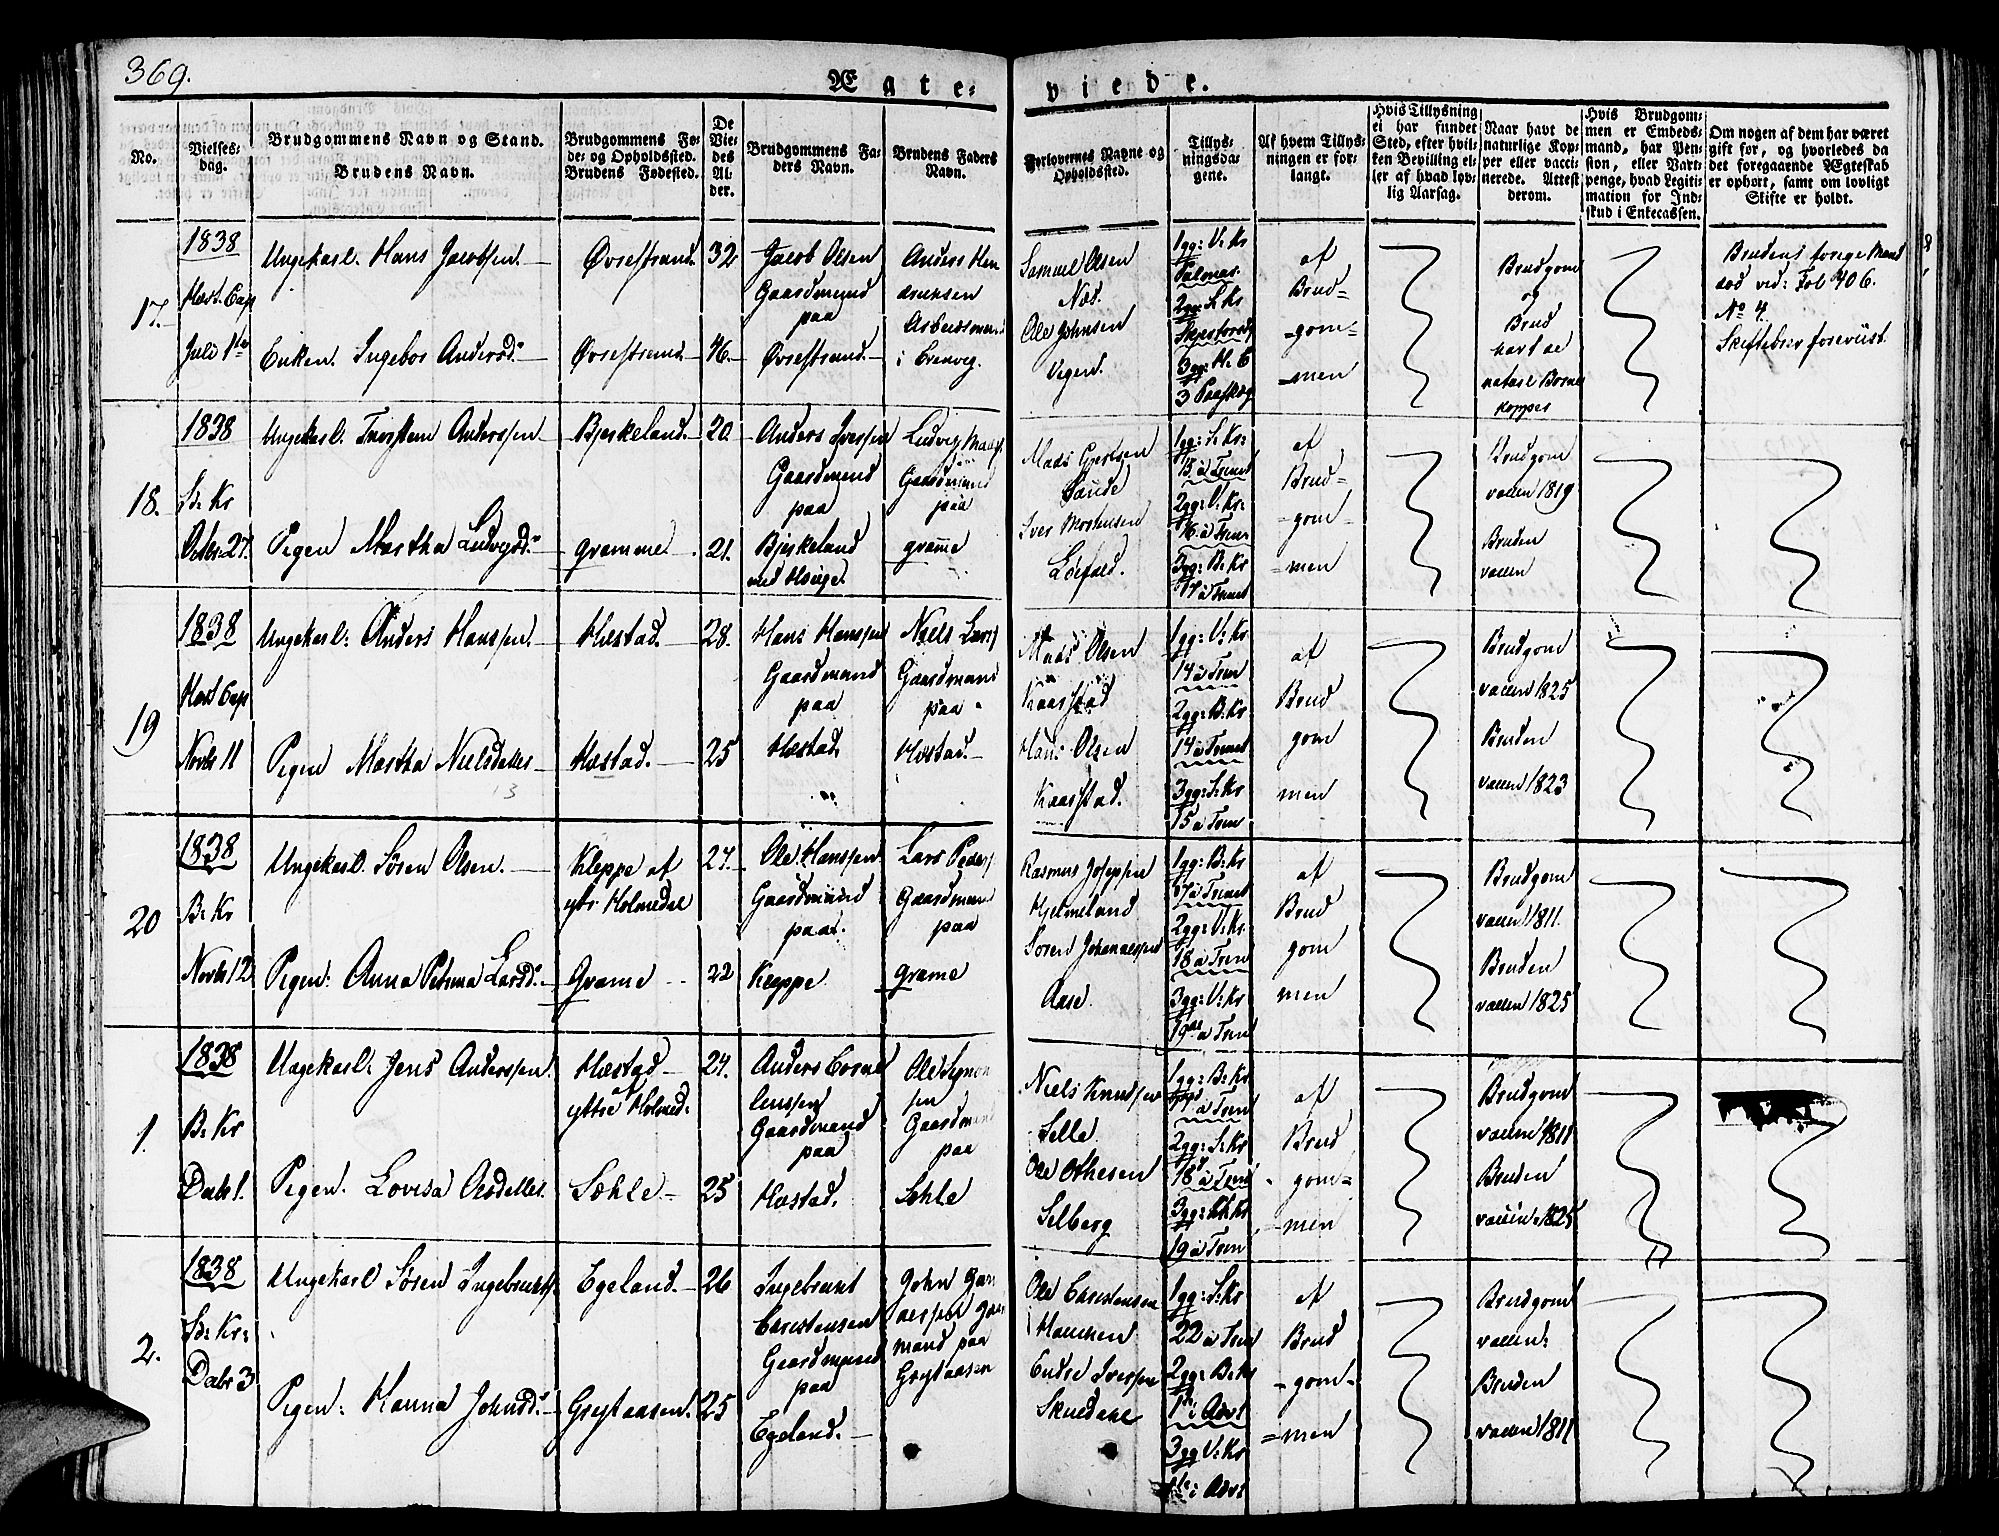 369.
Ægte-
viede.
No.
Vielses-
dag.
Brudgommens Navn og Stand.
Brudens Navn.
Brudgommens Fø-
de- og Opholdssted.
Brudens Fødested.
De
Vie-
des
Al-
der.
Brudgommens Fa-
ders Navn.
Brudens Faders
Navn.
Forlovernes Navne og
Opholdssted.
Tillys-
ningsda-
gene.
Af hvem Tillys-
ningen er for-
langt.
Hvis Tillysning
ei har fundet
Sted, efter hvil-
ken Bevilling el-
ler af hvad lov-
lig Aarsag.
Naar havt de
naturlige Kop-
per eller vacci-
nerede. Attest
derom.
Hvis Brudgom-
men er Embeds-
mand, har Pen-
sion, eller Vart-
penge, hvad Legiti-
mation for Ind-
skud i Enkecassen.
Om nogen af dem har været
gift før, og hvorledes da
det foregaaende Ægteskab
er ophørt, samt om lovligt
Skifte er holdt.
17.
1838
Juli 1
Ungekarl. Hans Jacobsen
Enken. Ingebor Andersd
Øvrestrand
Øvrestrand
32
46.
Jacob Olsen
Gaardmand
paa
Øvrestrand
Anders Hen
Samuel Olsen
Næs.
Ole Johnsen
1gg: V: Kr
Palmas.
2gg S: Kr
af
Brud=
=gom=
=men
Brudgom
og
Brud
havt de
kopper
Brudens forige Mand
død vid: Fol 406.
No 4.
18.
1838
Octbr 27.
Ungekarl. Anderssen
Pigen Martha Ludvigsd
Bjerkeland
gramme
20.
21.
Anders Iverssen
Gaardmand
paa
Bjerkeland
Gaardmand
paa
grame
Mads
Sande
Iver Mortensen
1gg: S: Kr:
15 a Trinit
2gg: V: Kr:
16 a Trin
3gg: B: Kr
17 a Trinit
af
Brud=
=gom=
=men
Brudgom
vaccn 1819
Bruden
vaccn
19
1838
Novbr 11
Ungekarl: Anders Hanssen.
Pigen Martha Nielsdatter
Hæstad.
Hæstad.
28.
25
Hans Hanssen
Gaardmand
paa
Hæstad
Niels Lars
Gaardmand
paa
Hæstad.
Mads Olsen
Kaarstad
Hans Olsen
Kaarstad.
1gg: V: Kr
14 a Trin
2gg: B: Kr
14 a Trinit
3gg: S: Kr
15 a Trin
af
Brud
gom
men
Brudgom
vaccn 1825
Bruden
vaccn 1823
20
1838
B: Kr
Novbr 12
Ungekarl. Søren Olsen.
Pigen: Anna Petrina Larsd
Kleppe af
ytr: Holmedal
Grame
27.
22
Ole Hanssen
Gaardmand
paa.
Kleppe
Lars Peders
Gaardmand
paa
grame
Rasmus Josepsen
Hjelmeland
Søren Johannessen
Aase.
1gg: B: Kr
17 a Trinit
2gg: V: Kr.
18 a Trin
3gg: V: Kr
19de a Trin
af
Brud
gom
men
Brudgom
vaccn 1811.
Bruden
vaccn 1825
1.
1838
B: Kr
Dcbr 1.
Ungekarl. Jens Anderssen.
Pigen. Lovisa
Hæstad
yttre Holmed:
Sæhle
24.
25
Anders Corne
liussen
Gaardmand
paa
Hæstad.
Ole Symon
sen
Gaardmand
paa
Sehle
Niels Knudsen
Selle.
Ole
Selberg
1gg: B: Kr
a Trin
2gg: S: Kr
18 a Trin
19 a Trin
af
Brud
gom=
=men
Brudgom
vaccn 1811
Bruden
vaccn: 1825
2.
1838
Dcbr 3
Ungekarl Søren Ingebrecht
Pigen: Hanna Johnsd
Egeland.
26
25
Ingebrecht
Christensen
Gaardmand
paa
Egeland.
mand paa
Ole Christensen
Endre Iverssen
1gg: S: Kr
22 a Trin
2gg: B: Kr
1te i Advt
3gg V: Kr
1te i Advt
af
Brud
=gom=
=men
Brudgom
vaccn:
Bruden
vaccn 1811